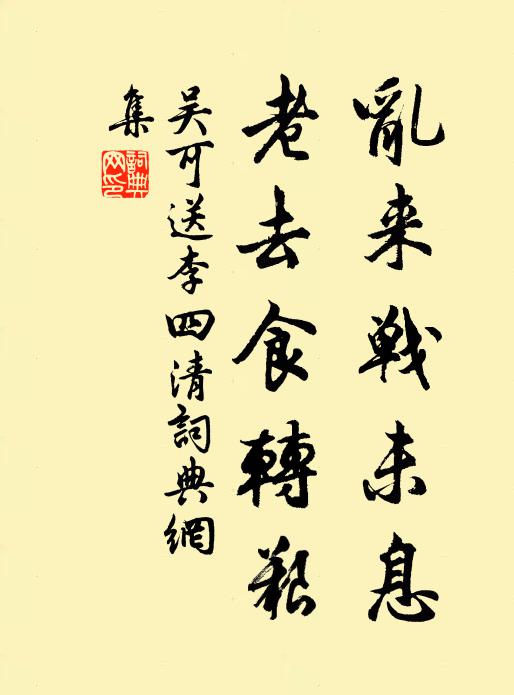 亂来戦未息
老去食轉艱
吴可送李四清詞典網
集
詞典網印